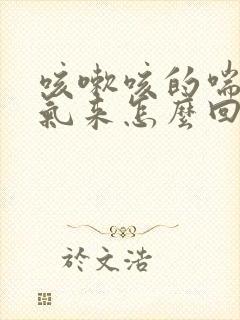 咳嗽咳的喘
氣来怎麼回
於文浩